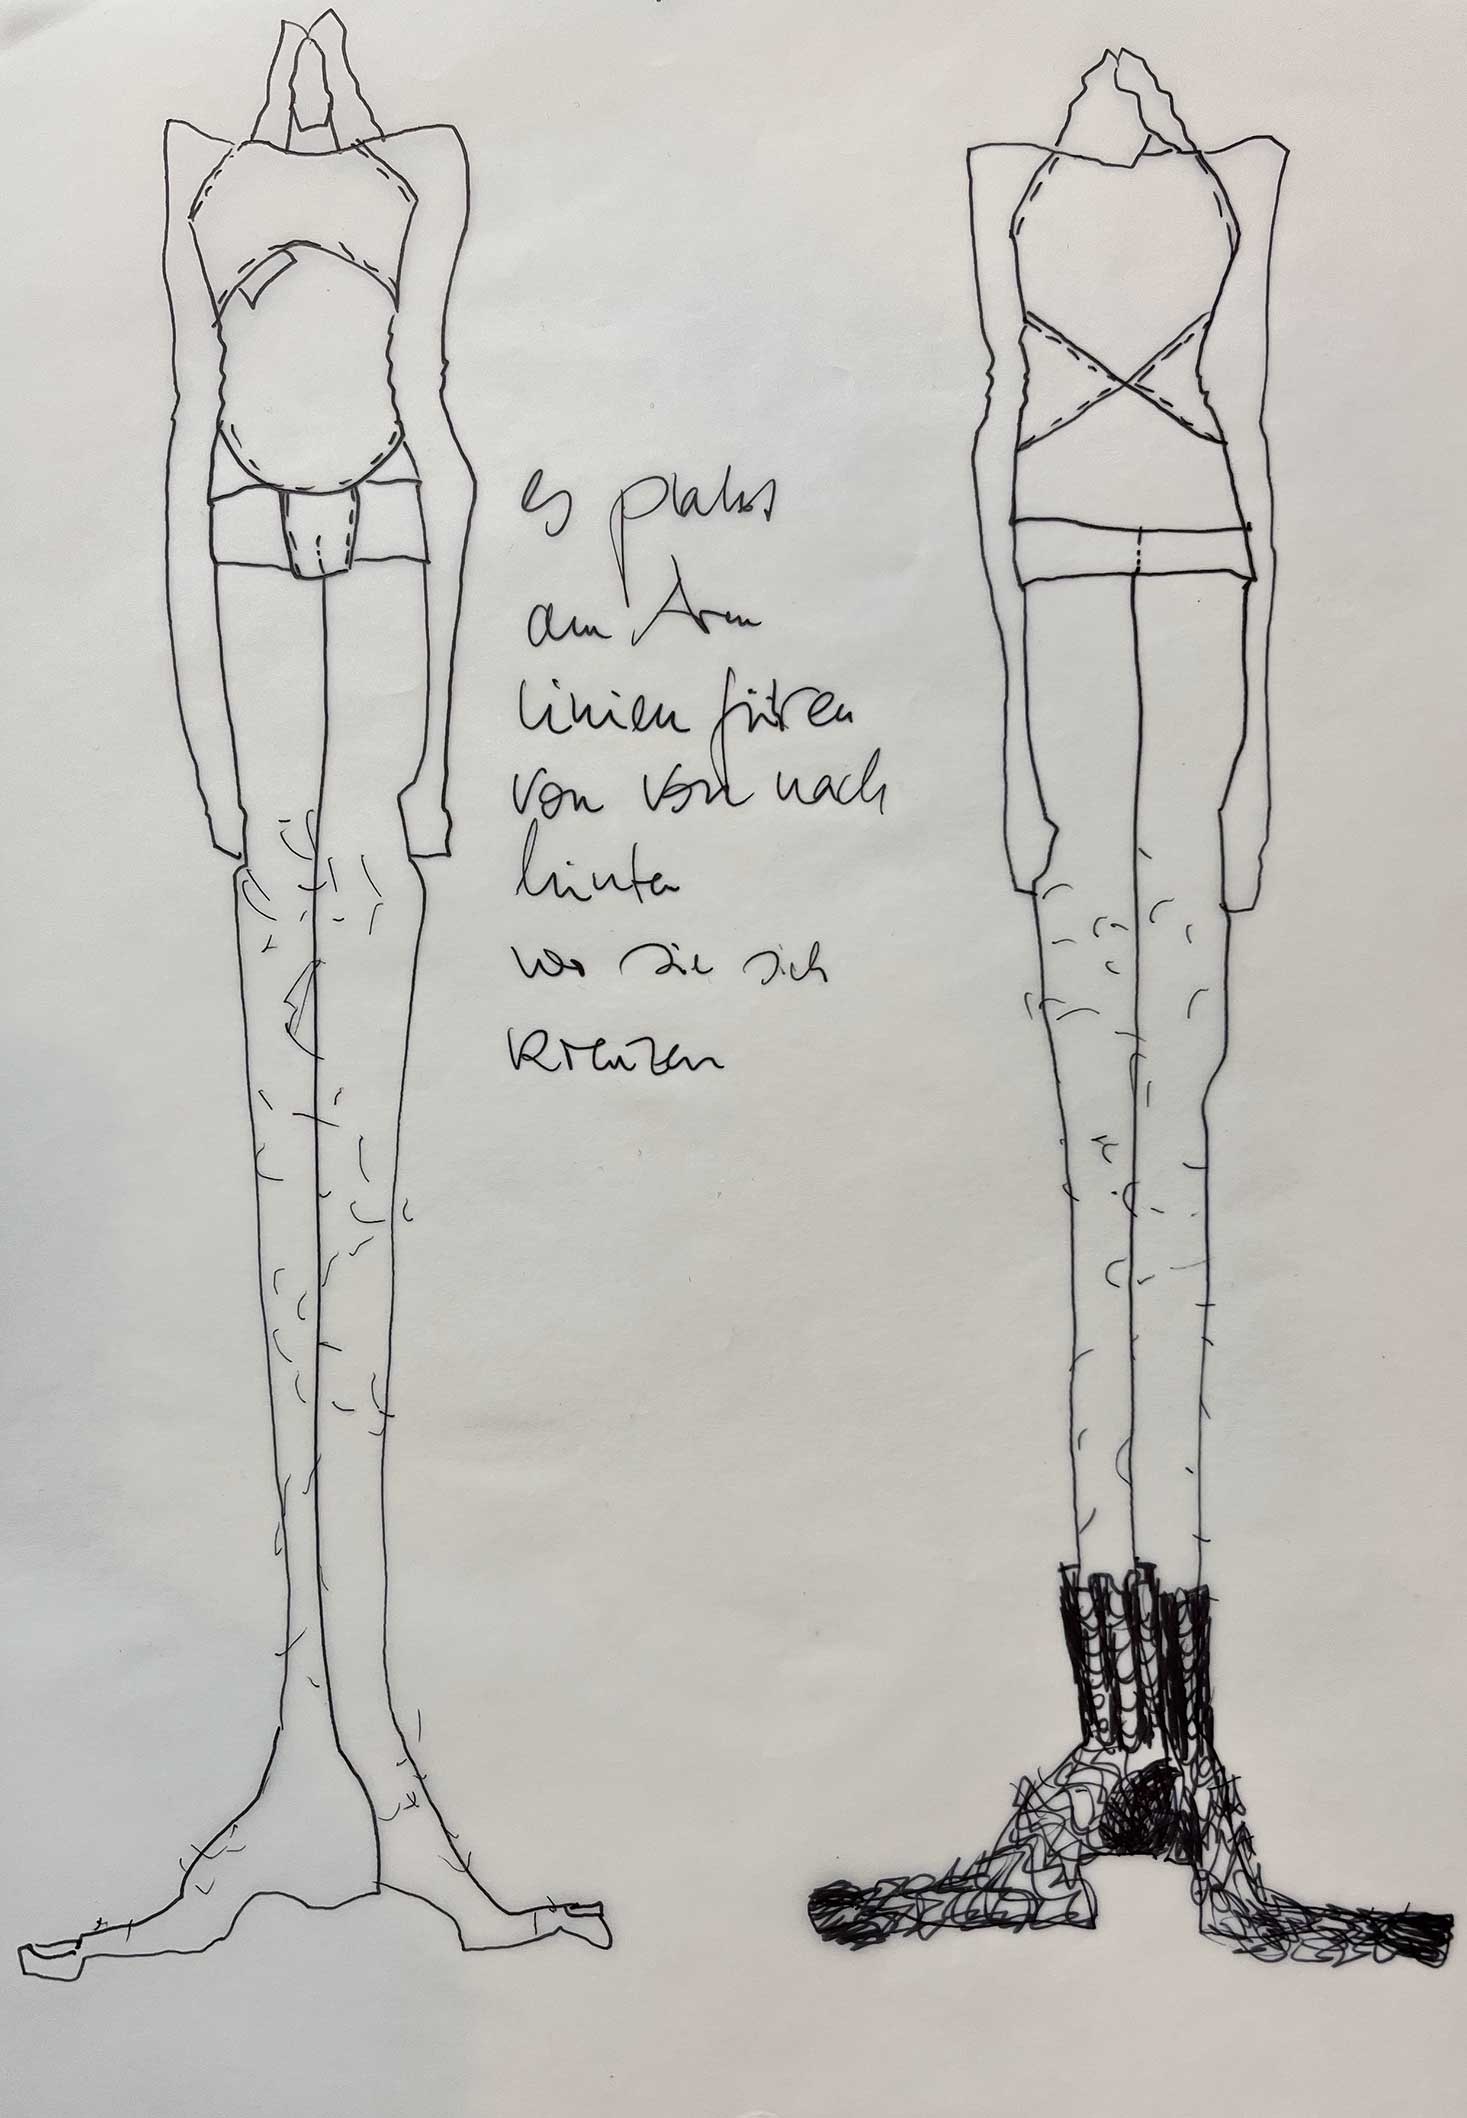 es platzt
am Arm
linien füren
von vorn nach
hinten
wo sie sich
Kreuzen